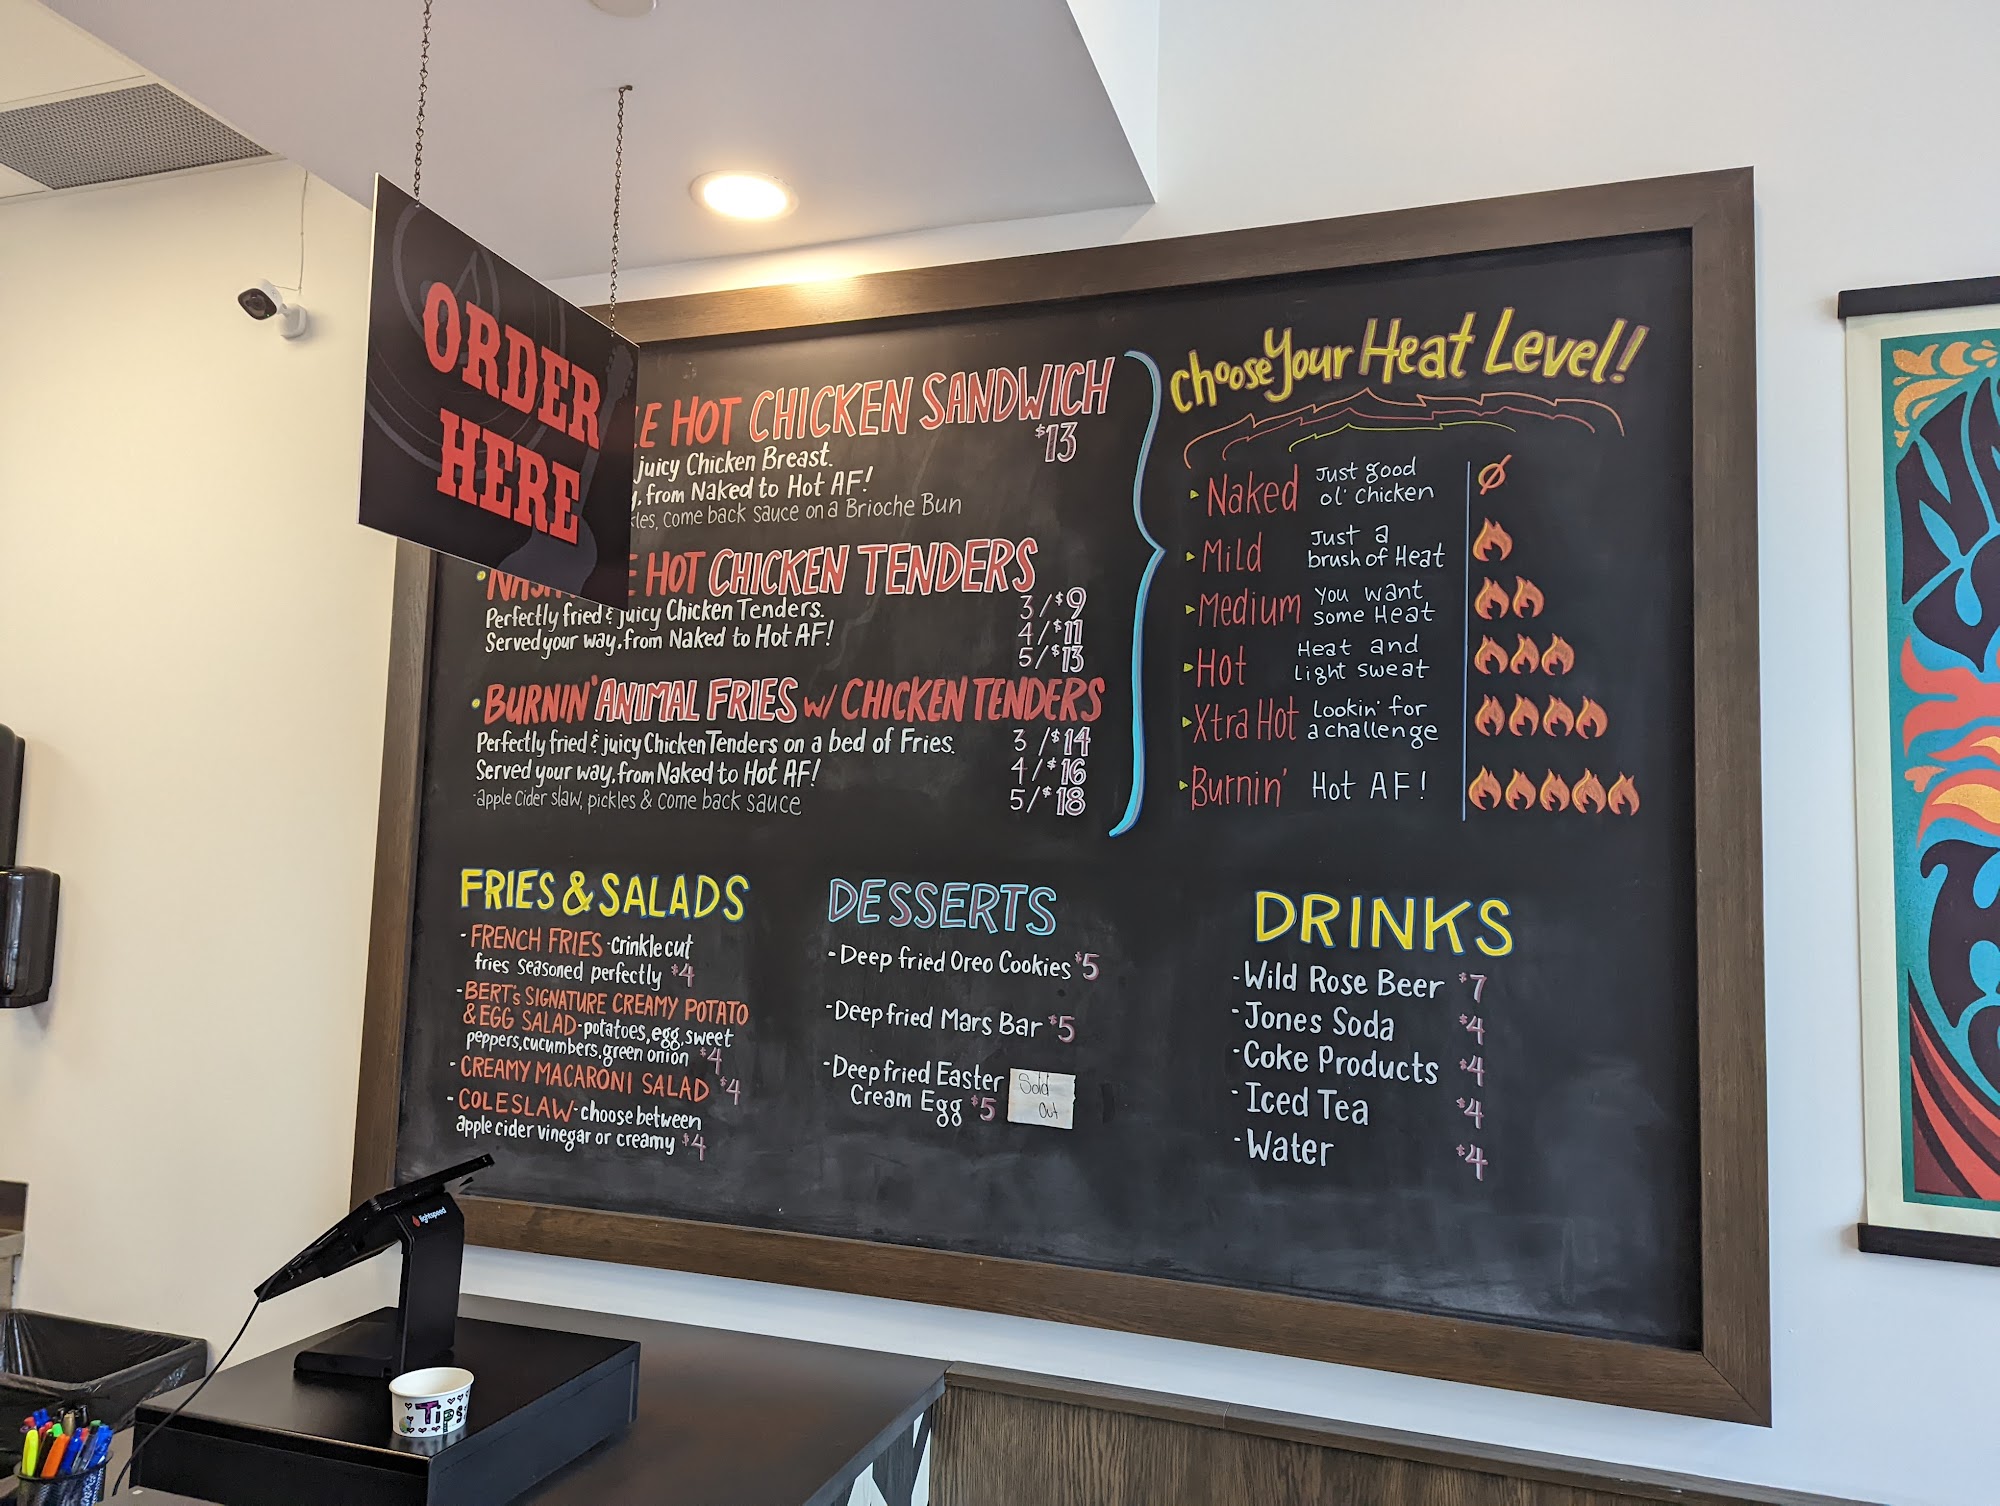 ORDER
HERE
LE HOT CHICKEN SANDWICH
$13
juicy Chicken Breast.
, from Naked to Hot AF!
kles, come back sauce on a Brioche Bun
• NASH E HOT CHICKEN TENDERS
Perfectly fried & juicy Chicken Tenders. 3/$9
Served your way, from Naked to Hot AF! 4/$11
5/$13
• BURNIN' ANIMAL FRIES w/ CHICKEN TENDERS
Perfectly fried & juicy Chicken Tenders on a bed of Fries. 3/$14
Served your way, from Naked to Hot AF! 4/$16
-apple Cider slaw, pickles & come back sauce 5/$18
Choose Your Heat Level!
Naked Just good
ol' Chicken
Mild Just a
brush of Heat
Medium You want
some Heat
Hot Heat and
light sweat
Xtra Hot Lookin' for
a challenge
Burnin' Hot AF!
FRIES & SALADS
- FRENCH FRIES - crinkle cut
fries seasoned perfectly $4
- BERT's SIGNATURE CREAMY POTATO
& EGG SALAD - potatoes, egg, sweet
peppers, cucumbers, green onion $4
- CREAMY MACARONI SALAD $4
- COLESLAW - choose between
apple cider vinegar or creamy $4
DESSERTS
- Deep fried Oreo Cookies $5
- Deep fried Mars Bar $5
- Deep fried Easter
Cream Egg $5
Sold
Out
DRINKS
- Wild Rose Beer $7
- Jones Soda $4
- Coke Products $4
- Iced Tea $4
- Water $4
lightspeed
TIPS